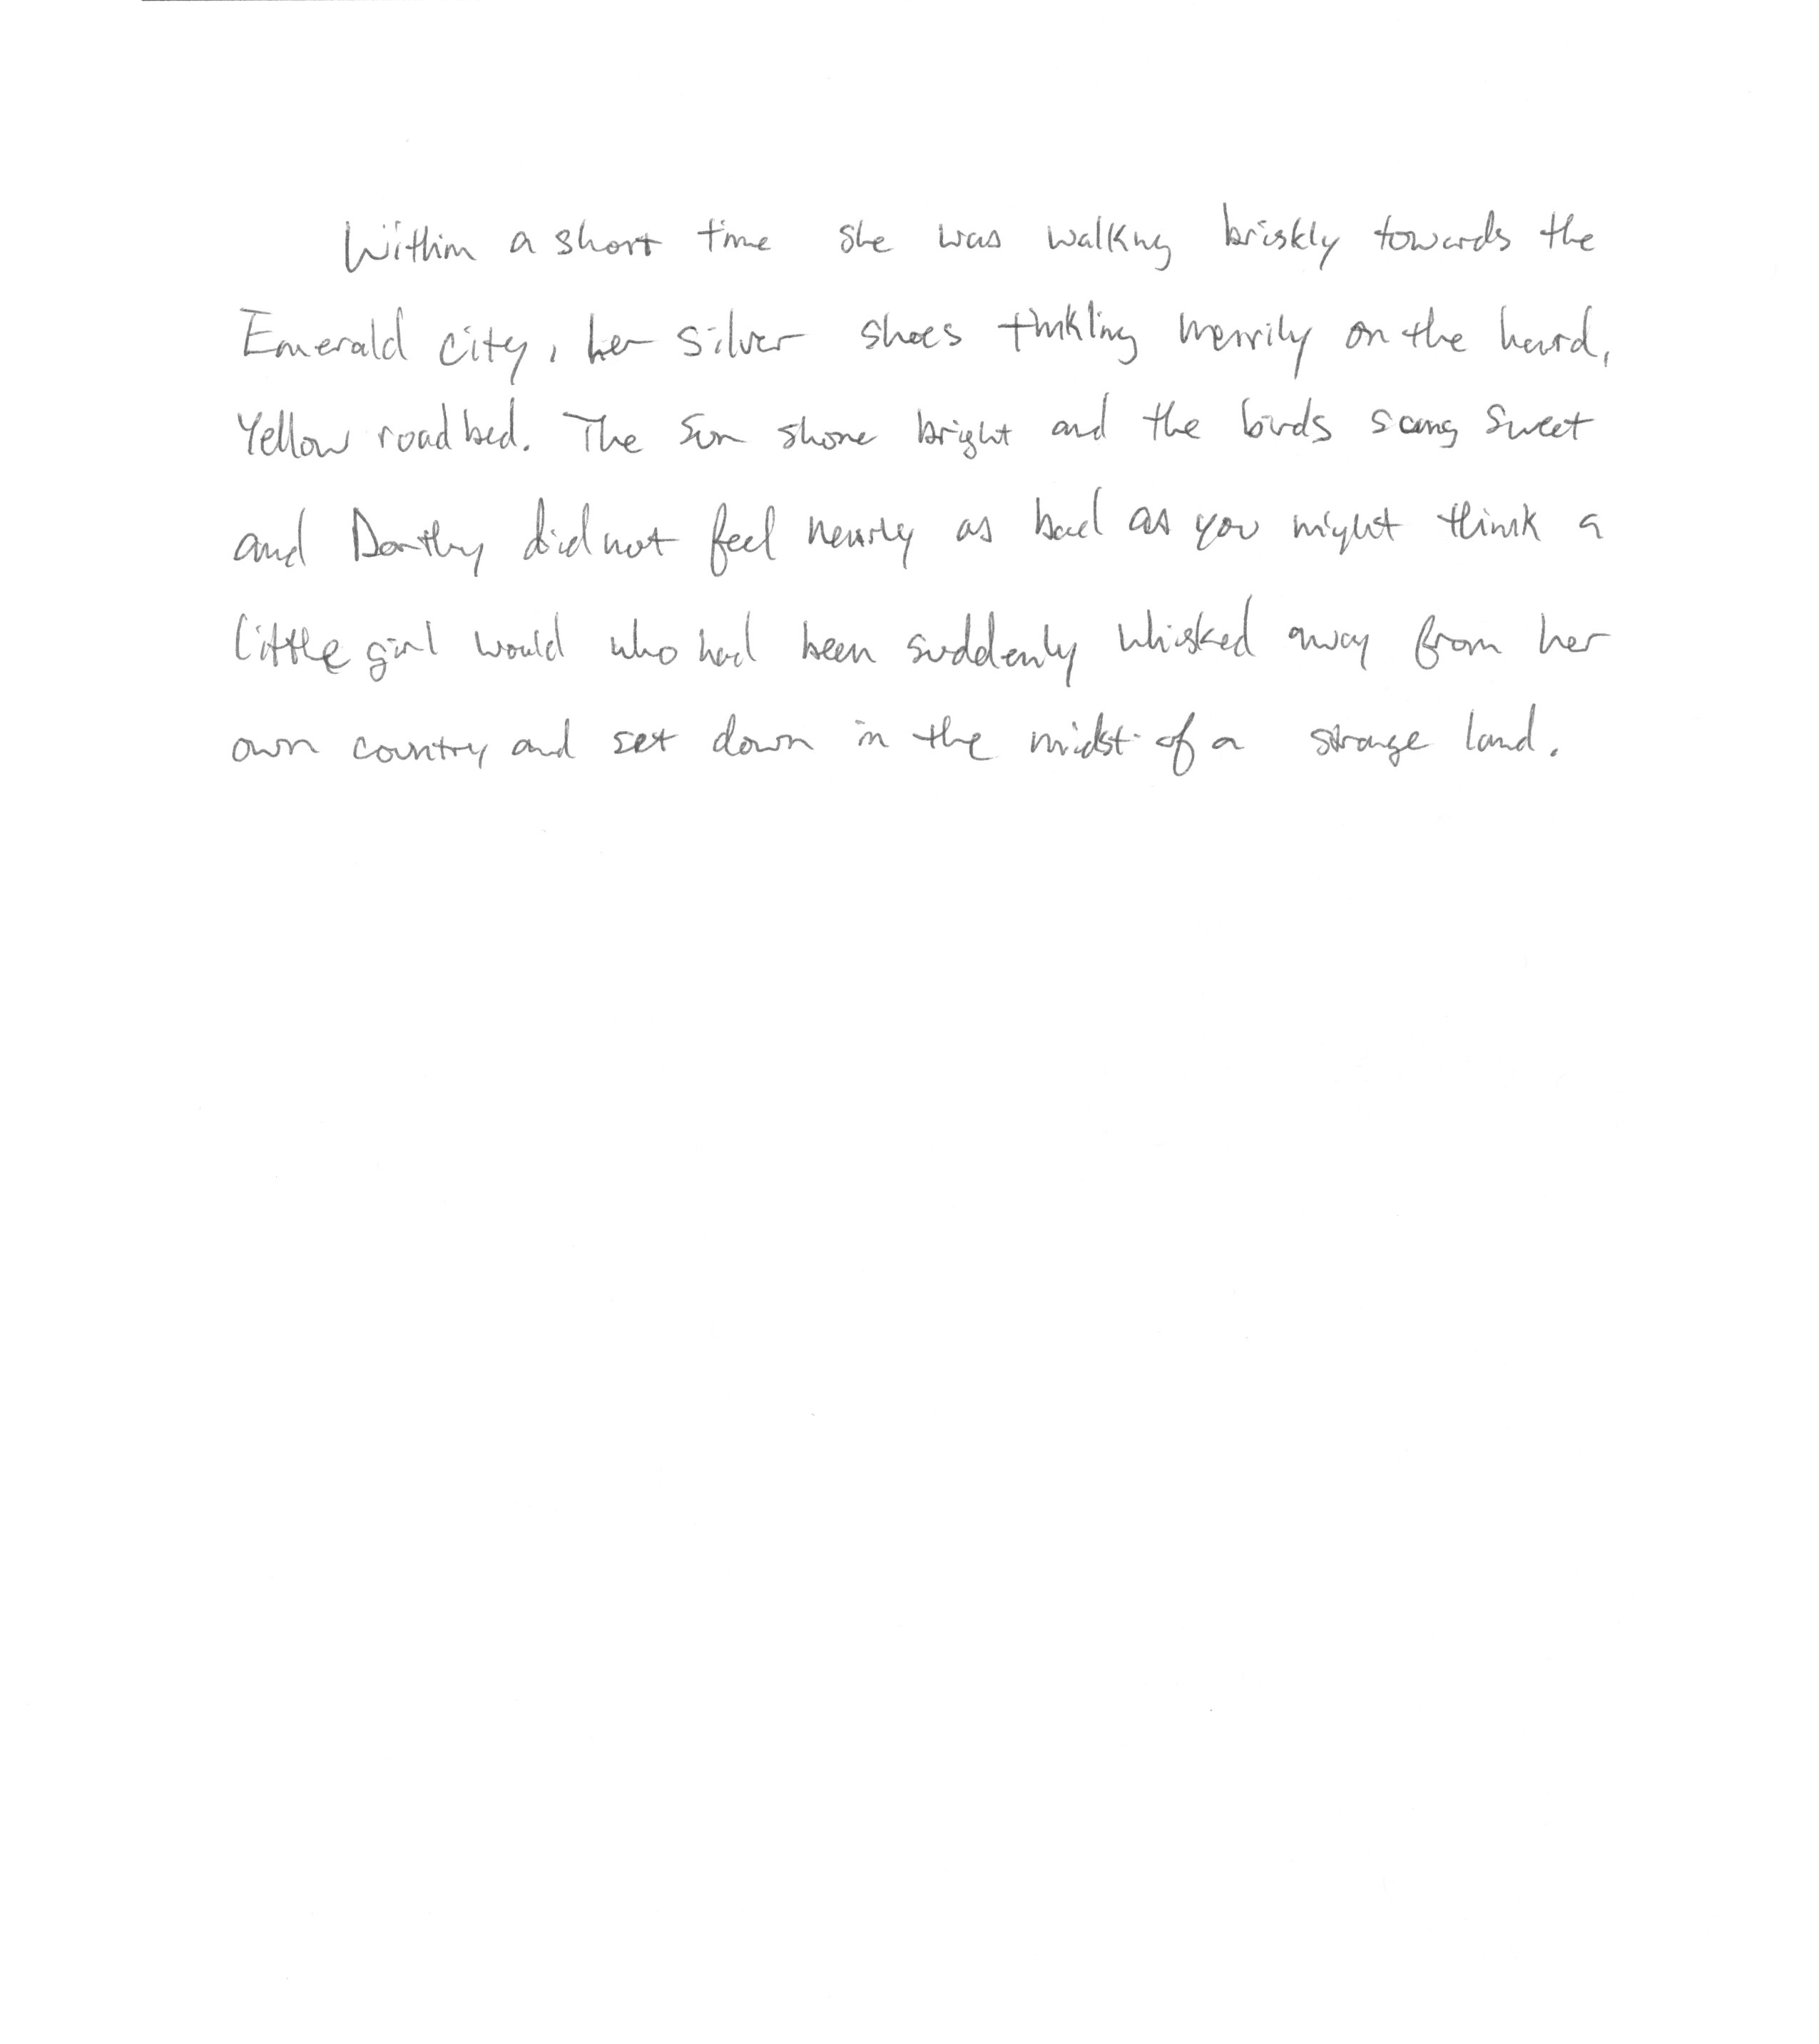 Within a short time she was walking briskly towards the
Emerald city, her silver shoes tinkling merrily on the hard,
Yellow road bed. The sun shone bright and the birds sang sweet
and Dorothy did not feel nearly as bad as you might think a
little girl would who had been suddenly whisked away from her
own country and set down in the midst of a strange land.